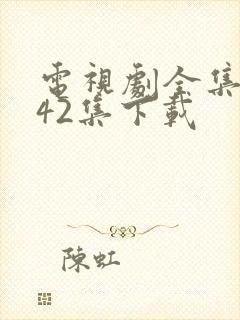 電視劇全集
42集下載
陳虹